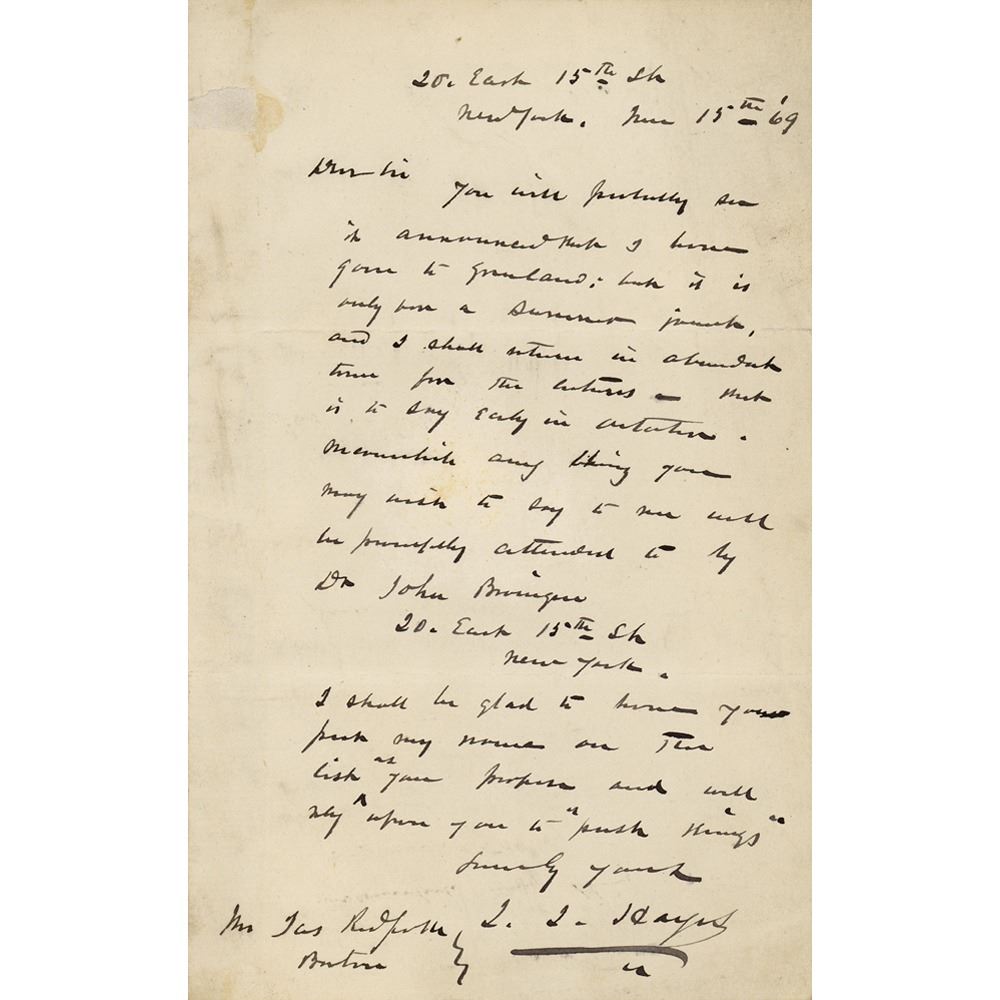 20. East 15th St
New York. June 15th '69
Dear Sir
You will probably see
it announced that I have
gone to Greenland; but it is
only for a Summer jaunt,
and I shall return in abundant
time for the lectures – that
is to say Early in October.
Meanwhile any thing you
may wish to say to me will
be promptly attended to by
Dr John
20. East 15th St
New York.
I shall be glad to have you
put my name on the
list as you propose and will
rely upon you to "push things"
Truly yours
I. I. Hayes
Mr Jas Redpath
Boston